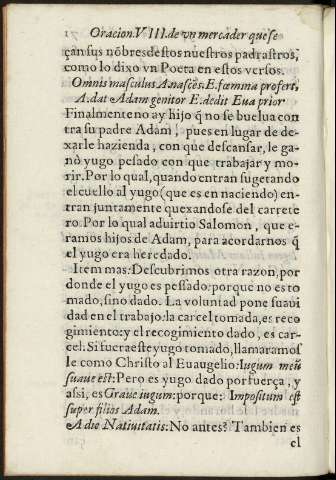 Oracion. VIII. de vn mercader que se
çan sus nõbres destos nuestros padrastros,
como lo dixo vn Poeta en estos versos.
Omnis masculus A nascẽs. E. fœmina profert,
A. dat Adam genitor E. dedit Eua prior
Finalmente no ay hijo q̃ no se buelua con
tra su padre Adam, pues en lugar de de-
xarle hazienda, con que descansar, le ga-
nò yugo pesado con que trabajar y mo-
rir. Por lo qual, quando entran sugetando
el cuello al yugo (que es en naciendo) en-
tran juntamente quexandose del carrete
ro. Por lo qual aduirtio Salomon, que e-
ramos hijos de Adam, para acordarnos q̃
el yugo era heredado.
Item mas: Descubrimos otra razon, por
donde el yugo es pessado: porque no es to
mado, sino dado. La voluntad pone suaui
dad en el trabajo: la carcel tomada, es reco
gimiento: y el recogimiento dado, es car-
cel: Si fuera este yugo tomado, llamaramos
le como Christo al Euaugelio: Iugum meũ
suaue est: Pero es yugo dado por fuerça, y
assi, es Graue iugum: porque: Impositum est
super filios Adam.
A die Natiuitatis: No antes? Tambien es
el